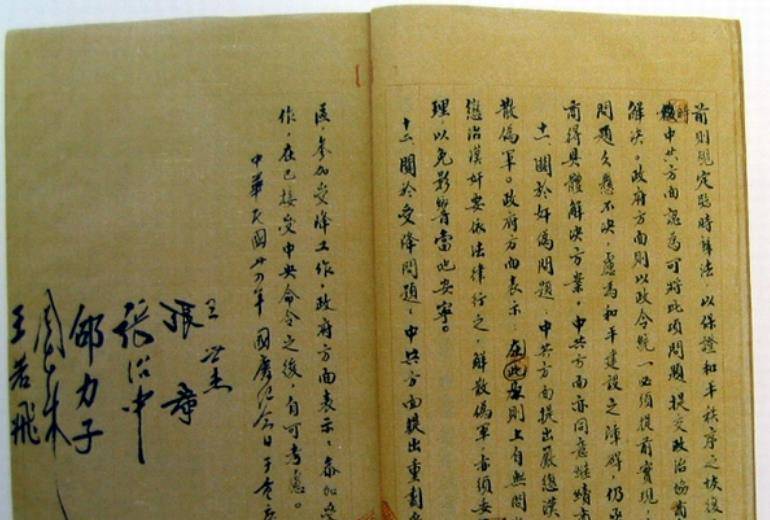 前則規定臨時辦法，以保證和平秩序之恢復
時中共方面認為可將此項問題提交政治協商
解決。政府方面則以政令統一必須提前實現，
問題久懸不決，慮為和平建設之障礙，仍亟
商得具體解決方案。中共方面亦同意繼續商
十一、關於奸偽問題，中共方面提出嚴懲漢
散偽軍。政府方面表示：在此原則上自無問
懲治漢奸要依法律行之，解散偽軍，亦須妥
理，以免影響當地安寧。
十二、關於受降問題，中共方面提出重劃受
區，參加受降工作，政府方面表示，參加受
作，在已接受中央命令之後，自可考慮。
中華民國卅四年國慶紀念日于重慶
王世杰
張羣
張治中
邵力子
周恩來
王若飛